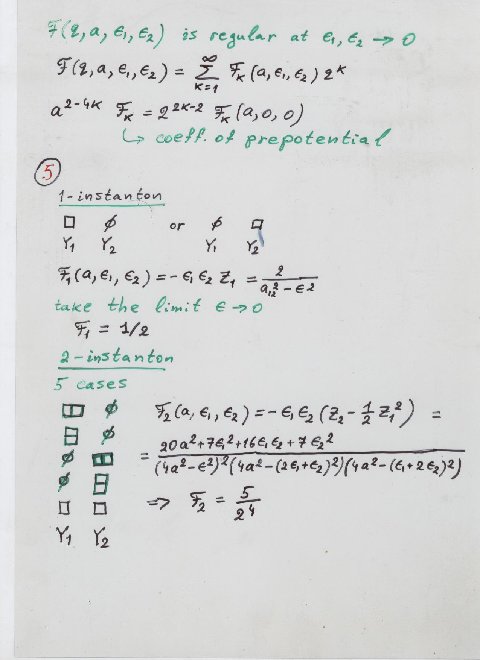 F(q, a, ε₁, ε₂) is regular at ε₁, ε₂ → 0
F(q, a, ε₁, ε₂) = ∑_{k=1}^{∞} F_k(a, ε₁, ε₂) q^k
a^{2-4k} F_k = 2^{2k-2} F_k(a, 0, 0)
↳ coeff. of prepotential
5
1-instanton
□ ∅ or ∅ □
Y₁ Y₂ Y₁ Y₂
F₁(a, ε₁, ε₂) = -ε₁ε₂ Z₁ = 2/(a₁₂² - ε²)
take the limit ε → 0
F₁ = 1/2
2-instanton
5 cases
∅ F₂(a, ε₁, ε₂) = -ε₁ε₂(Z₂ - 1/2 Z₁²) =
∅
∅ = (20a² + 7ε₁² + 16ε₁ε₂ + 7ε₂²)/((4a² - ε²)²(4a² - (2ε₁+ε₂)²)(4a² - (ε₁+2ε₂)²)
∅
□ □ ⇒ F₂ = 5/2⁴
Y₁ Y₂